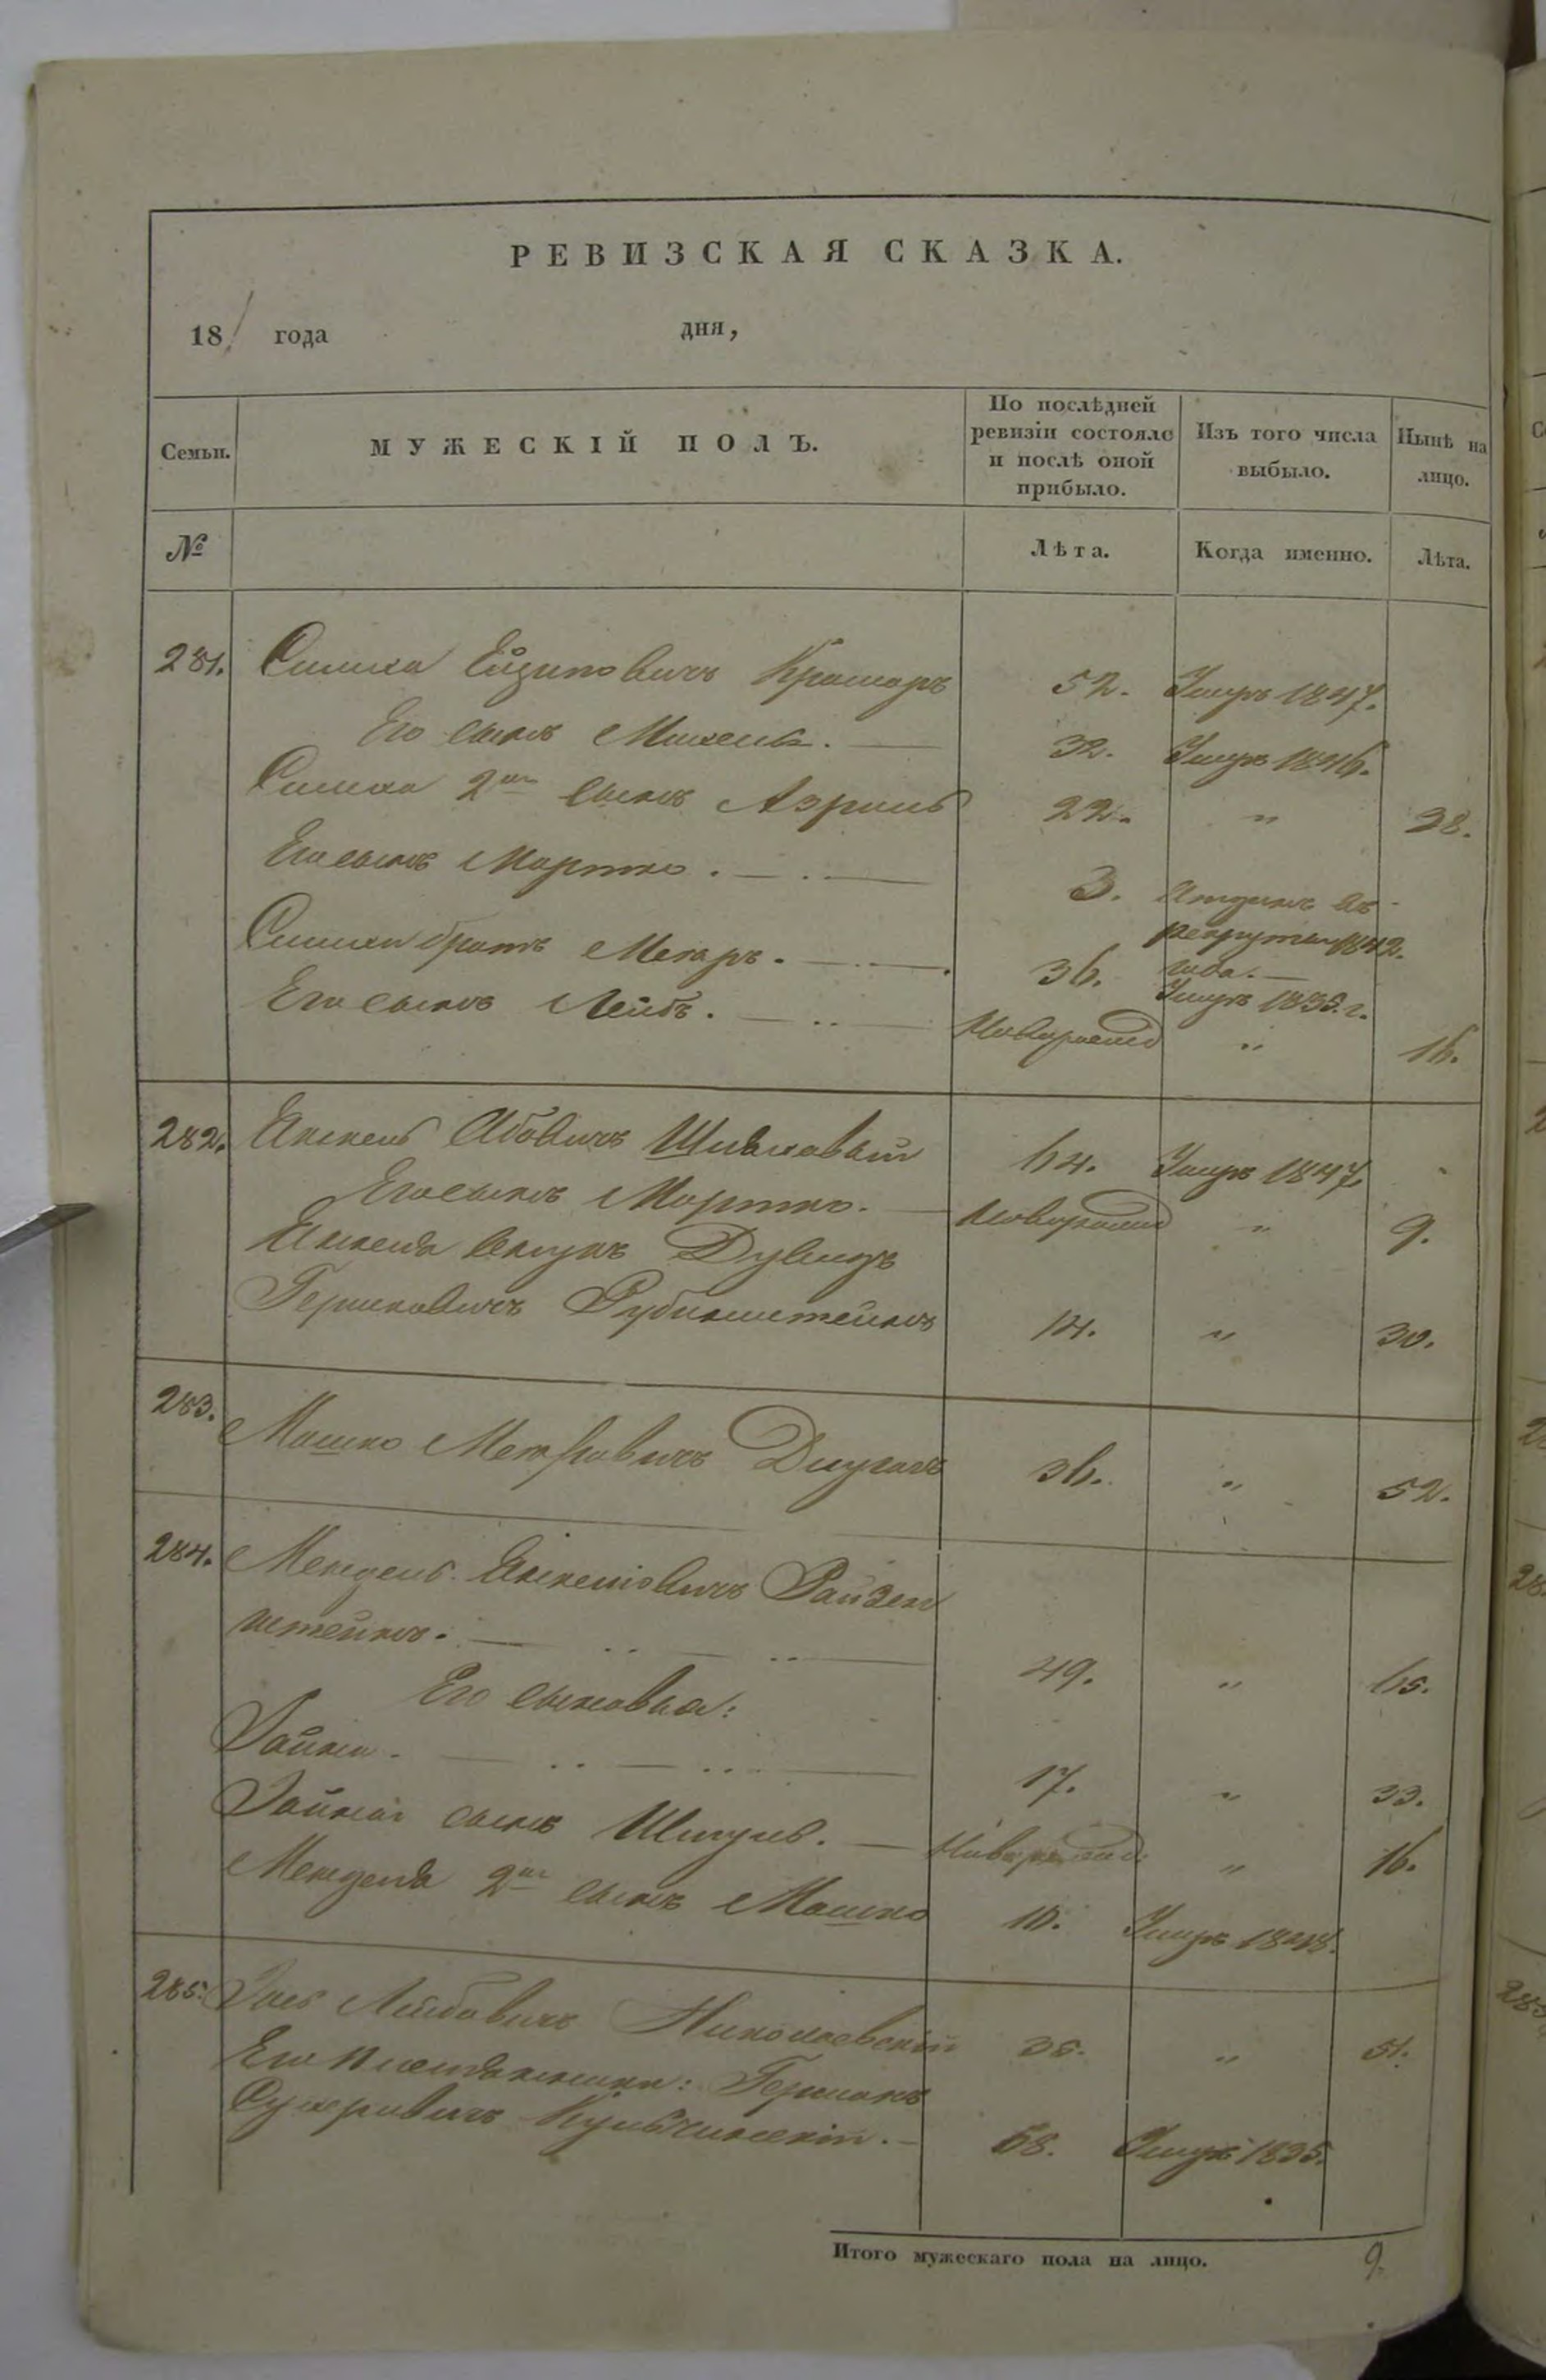 РЕВИЗСКАЯ СКАЗКА.
18 года дня,
Семьи. МУЖЕСКІЙ ПОЛЪ. По послѣдней ревизіи состояло и послѣ оной прибыло. Изъ того числа выбыло. Нынѣ на лицо.
№ Лѣта. Когда именно. Лѣта.
281. Симха Крамаръ 52. Умеръ 1847.
Его сынъ Михель. 32. Умеръ 1846.
Симхи 2й сынъ Азриль 22. " 38.
Его сынъ Мортко. 3. Отданъ въ
рекруты 1842
года.
Симхи братъ Мееръ. 36. Умеръ 1835 г.
Его сынъ Лейбъ. Новорожд " 16.
282. Янкель Абовичъ 64. Умеръ 1847
Его сынъ Мортко. Новорожд " 9.
Янкеля внукъ Дувидъ
Гершковичъ Рубинштейнъ 14. " 30.
283. Мошко Мееровичъ 36. " 52.
284. Мендель Янкеліовичъ Райзен
штейнъ. 49. " 65.
Его сыновья:
17. " 33.
сынъ Шмуль. Новорожд. " 16.
Менделя 2й сынъ Мошко 10. Умеръ 1848.
285. Лейбовичъ Николаевскій 35. " 51.
Его племянники: Гершонъ
68. Умеръ 1835.
Итого мужескаго пола на лицо. 9.